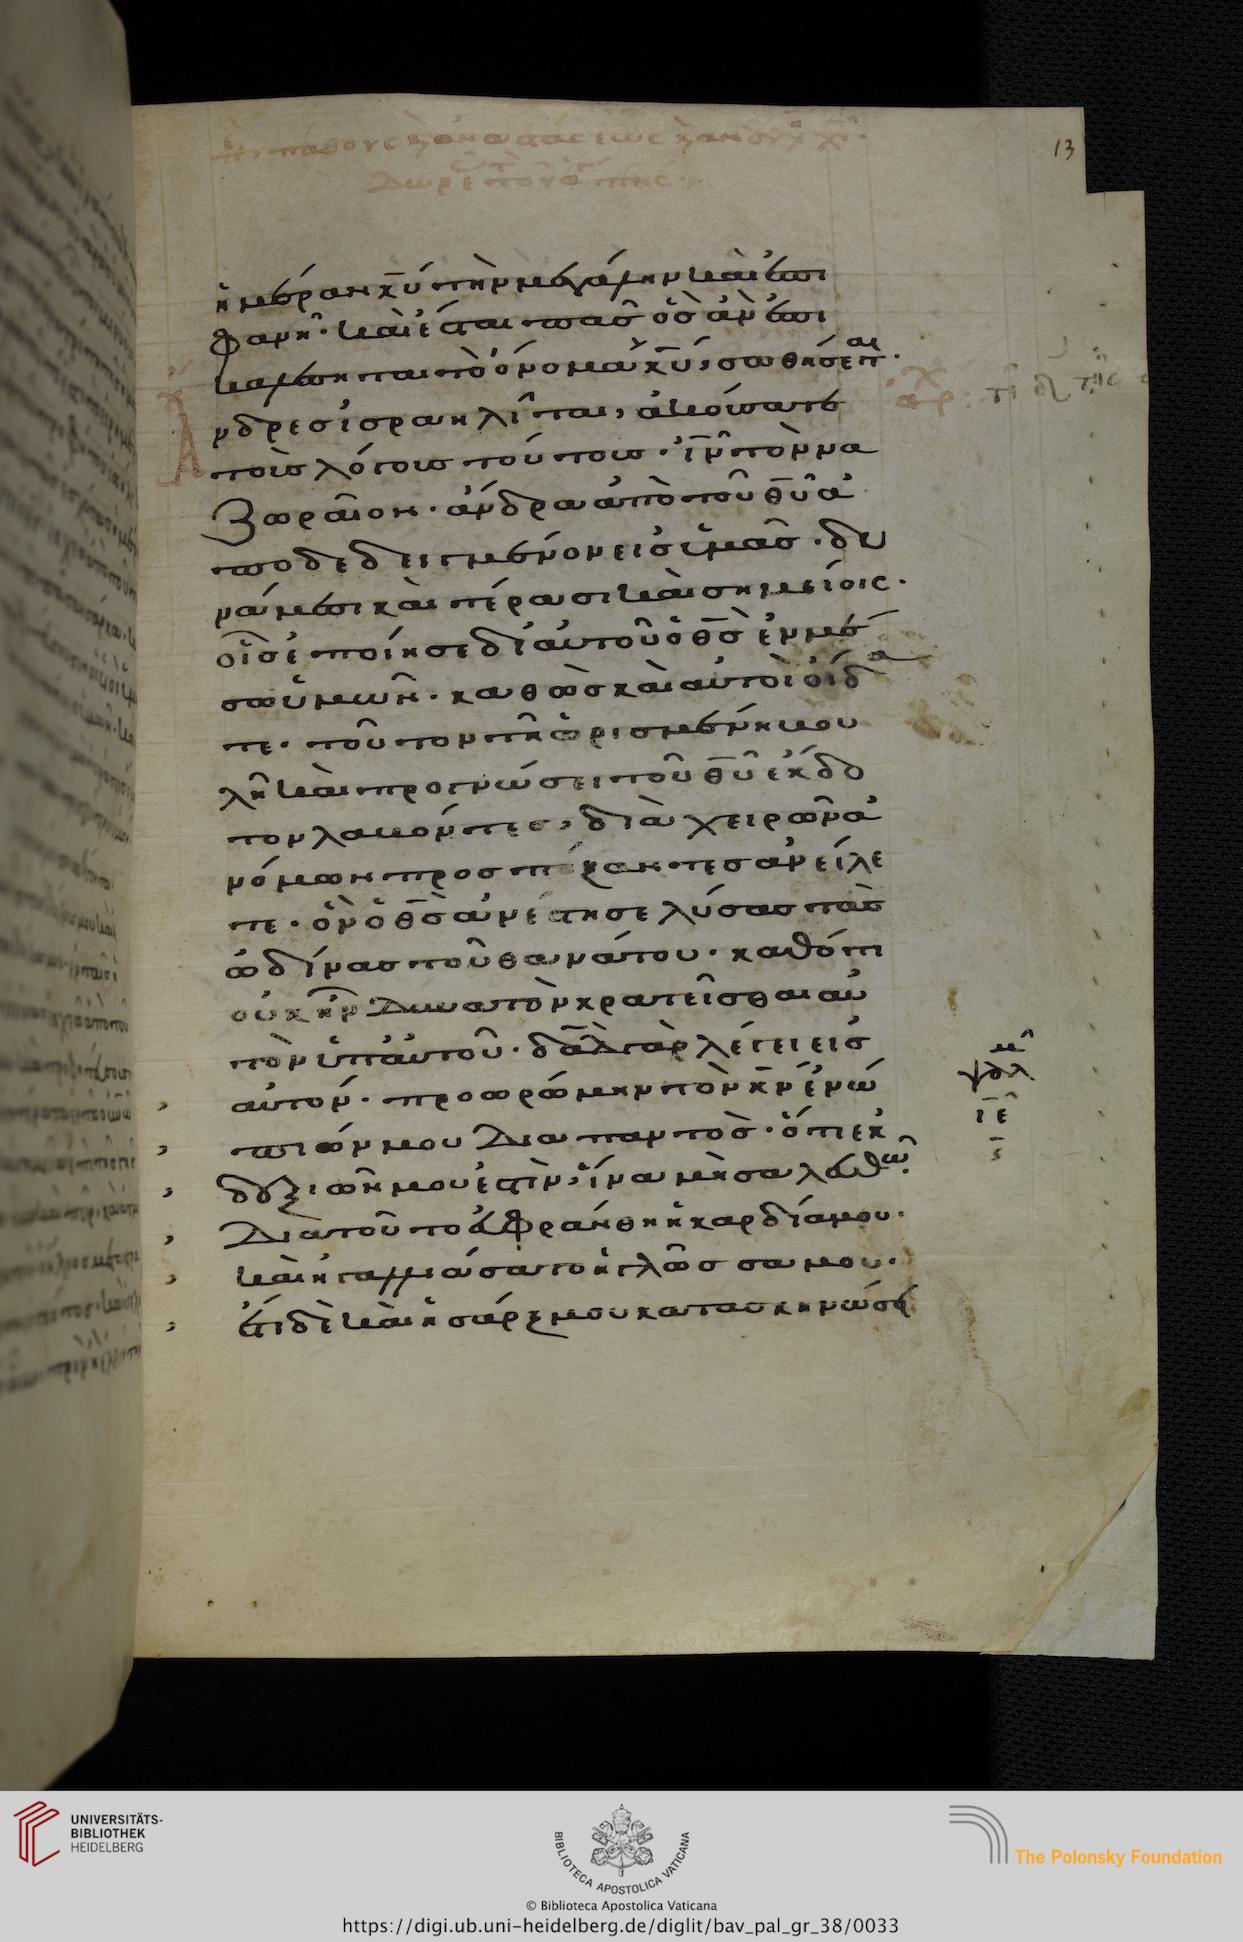 13
ἡμέραν κ̅υ̅ τὴν μεγάλην καὶ ἐπι
φανῆ· καὶ ἔσται πᾶσ ὃσ ἂν ἐπι
καλέσηται τὸ ὄνομα κ̅υ̅, σωθήσεται·
Ἄνδρεσ ἰσραηλῖται, ἀκούσατε
τοὺσ λόγουσ τούτουσ· ι̅ν̅ τὸν να
ζωραῖον· ἄνδρα ἀπὸ τοῦ θ̅υ̅ ἀ
ποδεδειγμένον εἰσ ὑμᾶσ· δυ
νάμεσι καὶ τέρασι καὶ σημείοις·
οἷσ ἐποίησε δι᾽ αὐτοῦ ὁ θ̅σ̅ ἐν μέ
σω ὑμῶν· καθὼσ καὶ αὐτοὶ οἴδα
τε· τοῦτον τῆ ὡρισμένη βου
λῆ καὶ προγνώσει τοῦ θ̅υ̅ ἔκδο
τον λαβόντες, διὰ χειρῶν ἀ
νόμων προσπήξαντεσ ἀνείλε
τε· ὃν ὁ θ̅σ̅ ἀνέστησε λύσασ τὰσ
ὠδίνασ τοῦ θανάτου· καθότι
οὐκ ἦν δυνατὸν κρατεῖσθαι αὐ
τὸν ὑπ᾽ αὐτοῦ· δ̅α̅δ̅ γὰρ λέγει εἰσ
αὐτόν· προορώμην τὸν κ̅ν̅ ἐνώ
πιόν μου διαπαντὸσ· ὅτι ἐκ
δεξιῶν μου ἐστὶν, ἵνα μὴ σαλευθῶ·
διατοῦτο εὐφράνθη ἡ καρδία μου·
καὶ ἠγαλλιάσατο ἡ γλῶσσα μου·
ἔτι δὲ καὶ ἡ σάρξ μου κατασκηνώσει
ψαλμ
ι̅ε̅
UNIVERSITÄTS-
BIBLIOTHEK
HEIDELBERG
BIBLIOTECA APOSTOLICA VATICANA
The Polonsky Foundation
© Biblioteca Apostolica Vaticana
https://digi.ub.uni-heidelberg.de/diglit/bav_pal_gr_38/0033